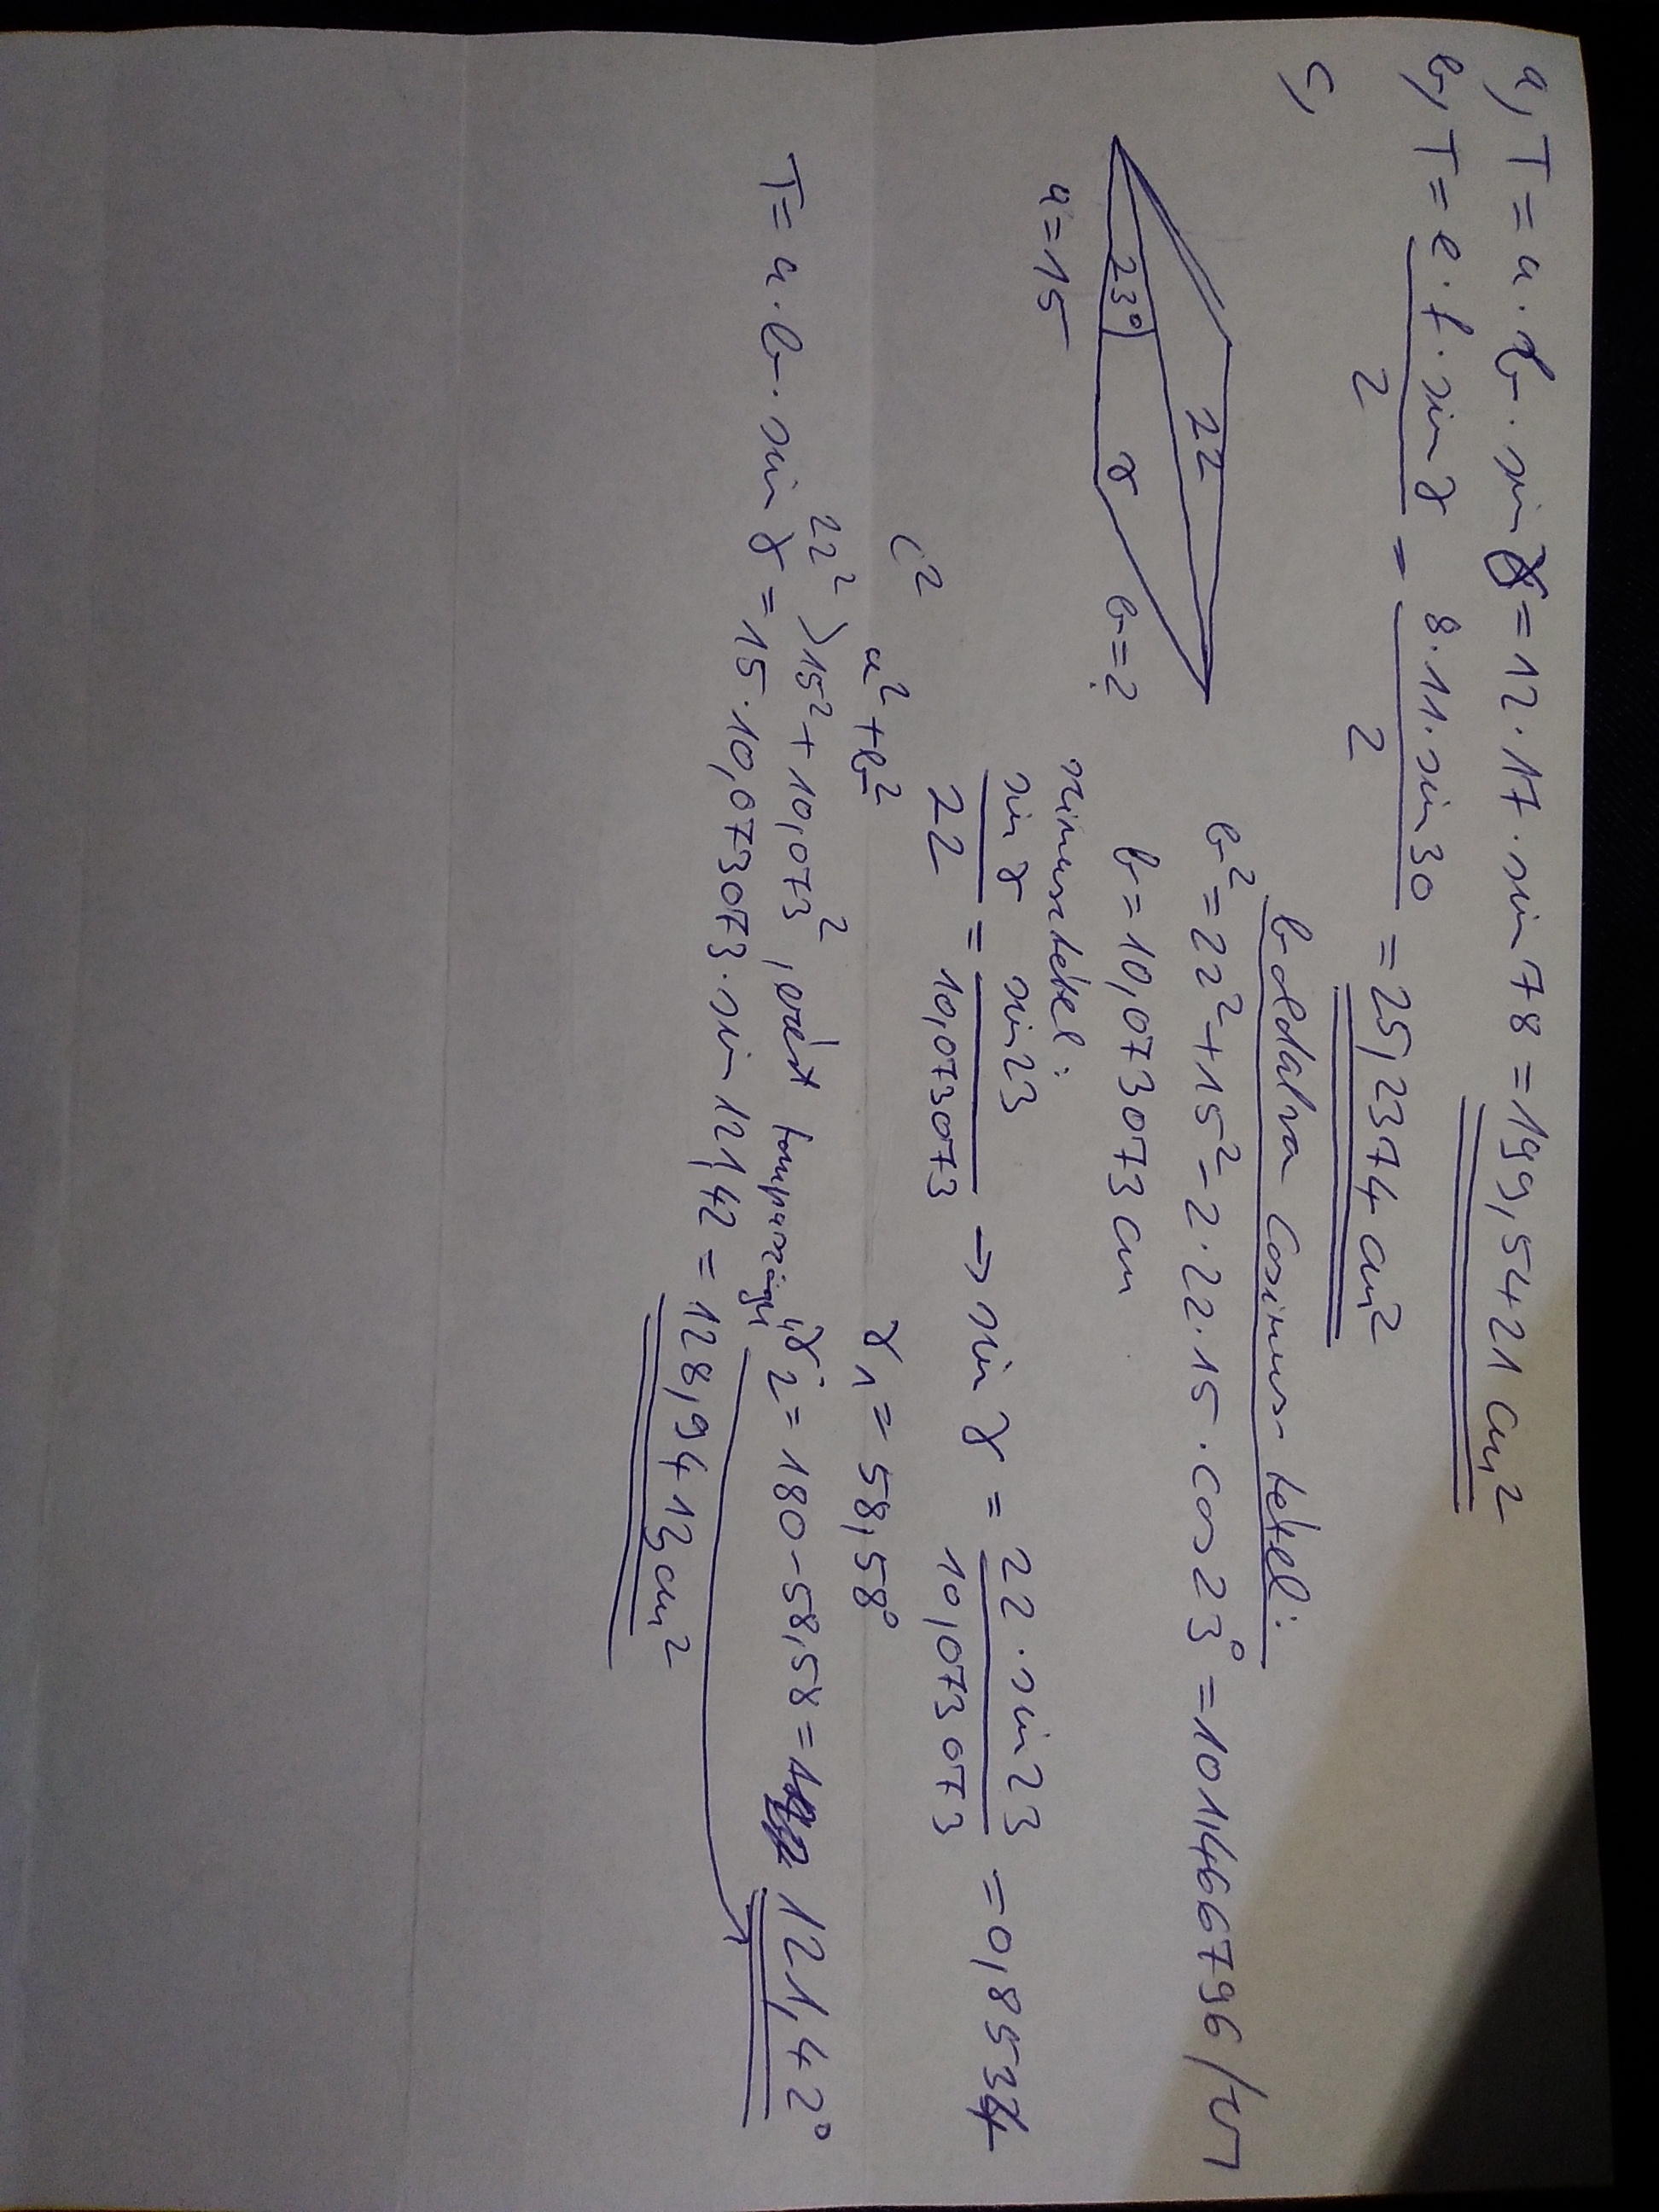 a, T = a · b · sin γ = 12 · 17 · sin 78 = 199,5421 cm²
b, T = e · f · sin γ / 2 = 8 · 11 · sin 30 / 2 = 25,2374 cm²
c,
b oldalra Cosinus-tétel:
22
23°
γ
b = ?
a = 15
b² = 22² + 15² - 2 · 22 · 15 · cos 23° = 101,4667796 /√
b = 10,073073 cm
sinusztétel:
sin γ / 22 = sin 23 / 10,073073 → sin γ = 22 · sin 23 / 10,073073 = 0,8534
c² a² + b² γ1 = 58,58°
22² > 15² + 10,073², ezért tompaszögű γ2 = 180 - 58,58 = 121,42°
T = a · b · sin γ = 15 · 10,073073 · sin 121,42 = 128,9413 cm²